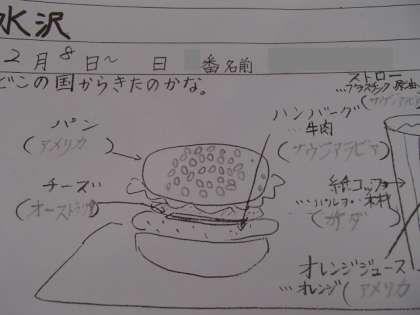 水沢
2月8日~ 日 番名前
どこの国からきたのかな。
ストロー
…プラスチック 原油
パン
(アメリカ)
ハンバーグ
…牛肉
(サウジアラビア)
チーズ
(オーストラリア)
紙コップ
…パルプ・木材
(カナダ)
オレンジジュース
…オレンジ(アメリカ